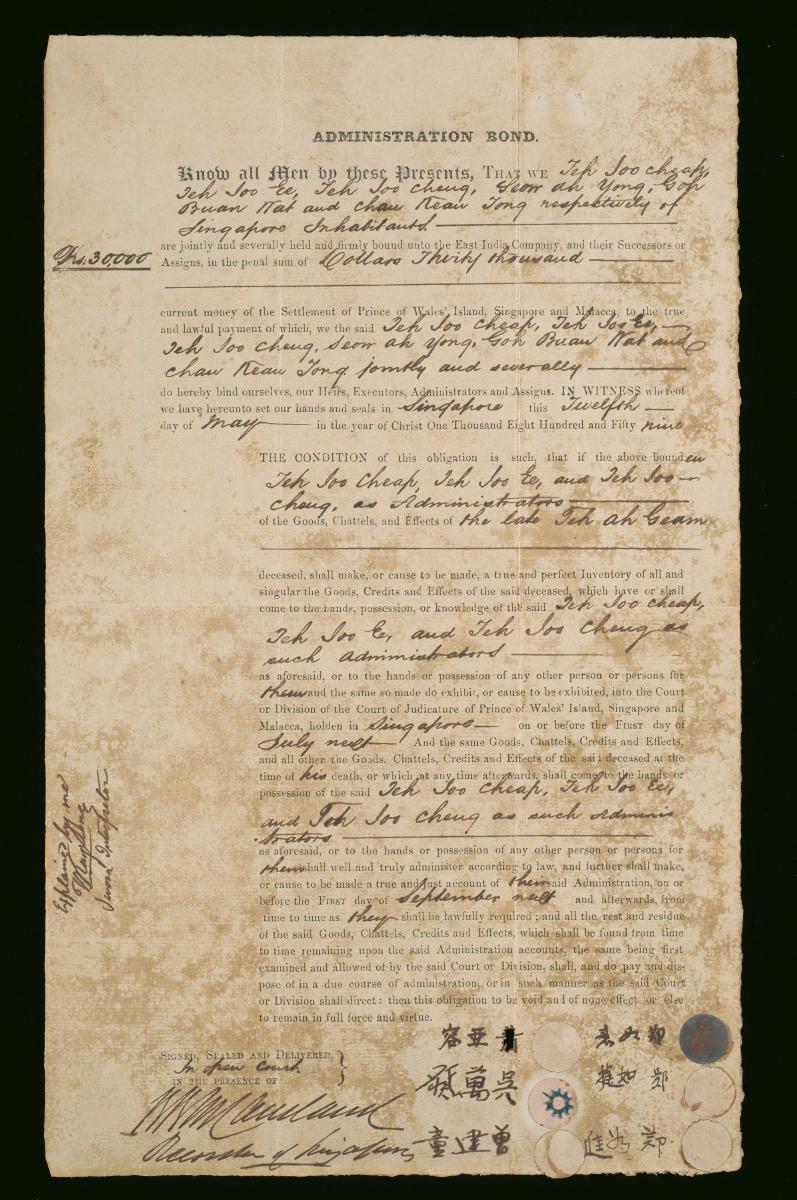 ADMINISTRATION BOND.
Know all Men by these Presents, THAT WE Teh Soo cheap,
Teh Soo Ee, Teh Soo cheng, Seow ah Yong, Goh
Buan Wat and Chan Keau Tong respectively of
Singapore Inhabitants.
are jointly and severally held and firmly bound unto the East India Company, and their Successors or
Drs. 30,000
Assigns, in the penal sum of Dollars Thirty thousand
current money of the Settlement of Prince of Wales' Island, Singapore and Malacca, to the true
and lawful payment of which, we the said Teh Soo cheap, Teh Soo Ee,
Teh Soo cheng, Seow ah Yong, Goh Buan Wat and
chan Keau Tong jointly and severally
do hereby bind ourselves, our Heirs, Executors, Administrators and Assigns. IN WITNESS whereof
we have hereunto set our hands and seals in Singapore this Twelfth
day of May in the year of Christ One Thousand Eight Hundred and Fifty nine
THE CONDITION of this obligation is such, that if the above bounden
Teh Soo Cheap, Teh Soo Ee, and Teh Soo
cheng, as Administrators
of the Goods, Chattels, and Effects of the late Teh ah Geam
deceased, shall make, or cause to be made, a true and perfect Inventory of all and
singular the Goods, Credits and Effects of the said deceased, which have or shall
come to the hands, possession, or knowledge of the said Teh Soo cheap,
Teh Soo Ee, and Teh Soo Cheng as
such administrators
as aforesaid, or to the hands or possession of any other person or persons for
them and the same so made do exhibit, or cause to be exhibited, into the Court
or Division of the Court of Judicature of Prince of Wales' Island, Singapore and
Malacca, holden in Singapore on or before the FIRST day of
July next And the same Goods, Chattels, Credits and Effects,
and all other the Goods, Chattels, Credits and Effects of the said deceased at the
time of his death, or which at any time afterwards, shall come to the hands or
possession of the said Teh Soo Cheap, Teh Soo Ee,
and Teh Soo Cheng as such Adminis
trators
as aforesaid, or to the hands or possession of any other person or persons for
them shall well and truly administer according to law, and further shall make,
or cause to be made a true and just account of their said Administration, on or
before the FIRST day of September next and afterwards, from
time to time as they shall be lawfully required; and all the rest and residue
of the said Goods, Chattels, Credits and Effects, which shall be found from time
to time remaining upon the said Administration accounts, the same being first
examined and allowed of by the said Court or Division, shall, and do pay and dis-
pose of in a due course of administration, or in such manner as the said Court
or Division shall direct: then this obligation to be void and of none effect or else
to remain in full force and virtue.
Explained by me
Sworn Interpreter
SIGNED, SEALED AND DELIVERED,
In open Court
IN THE PRESENCE OF
Recorder of Singapore
吳萬
曾建童
鄭如
鄭如進